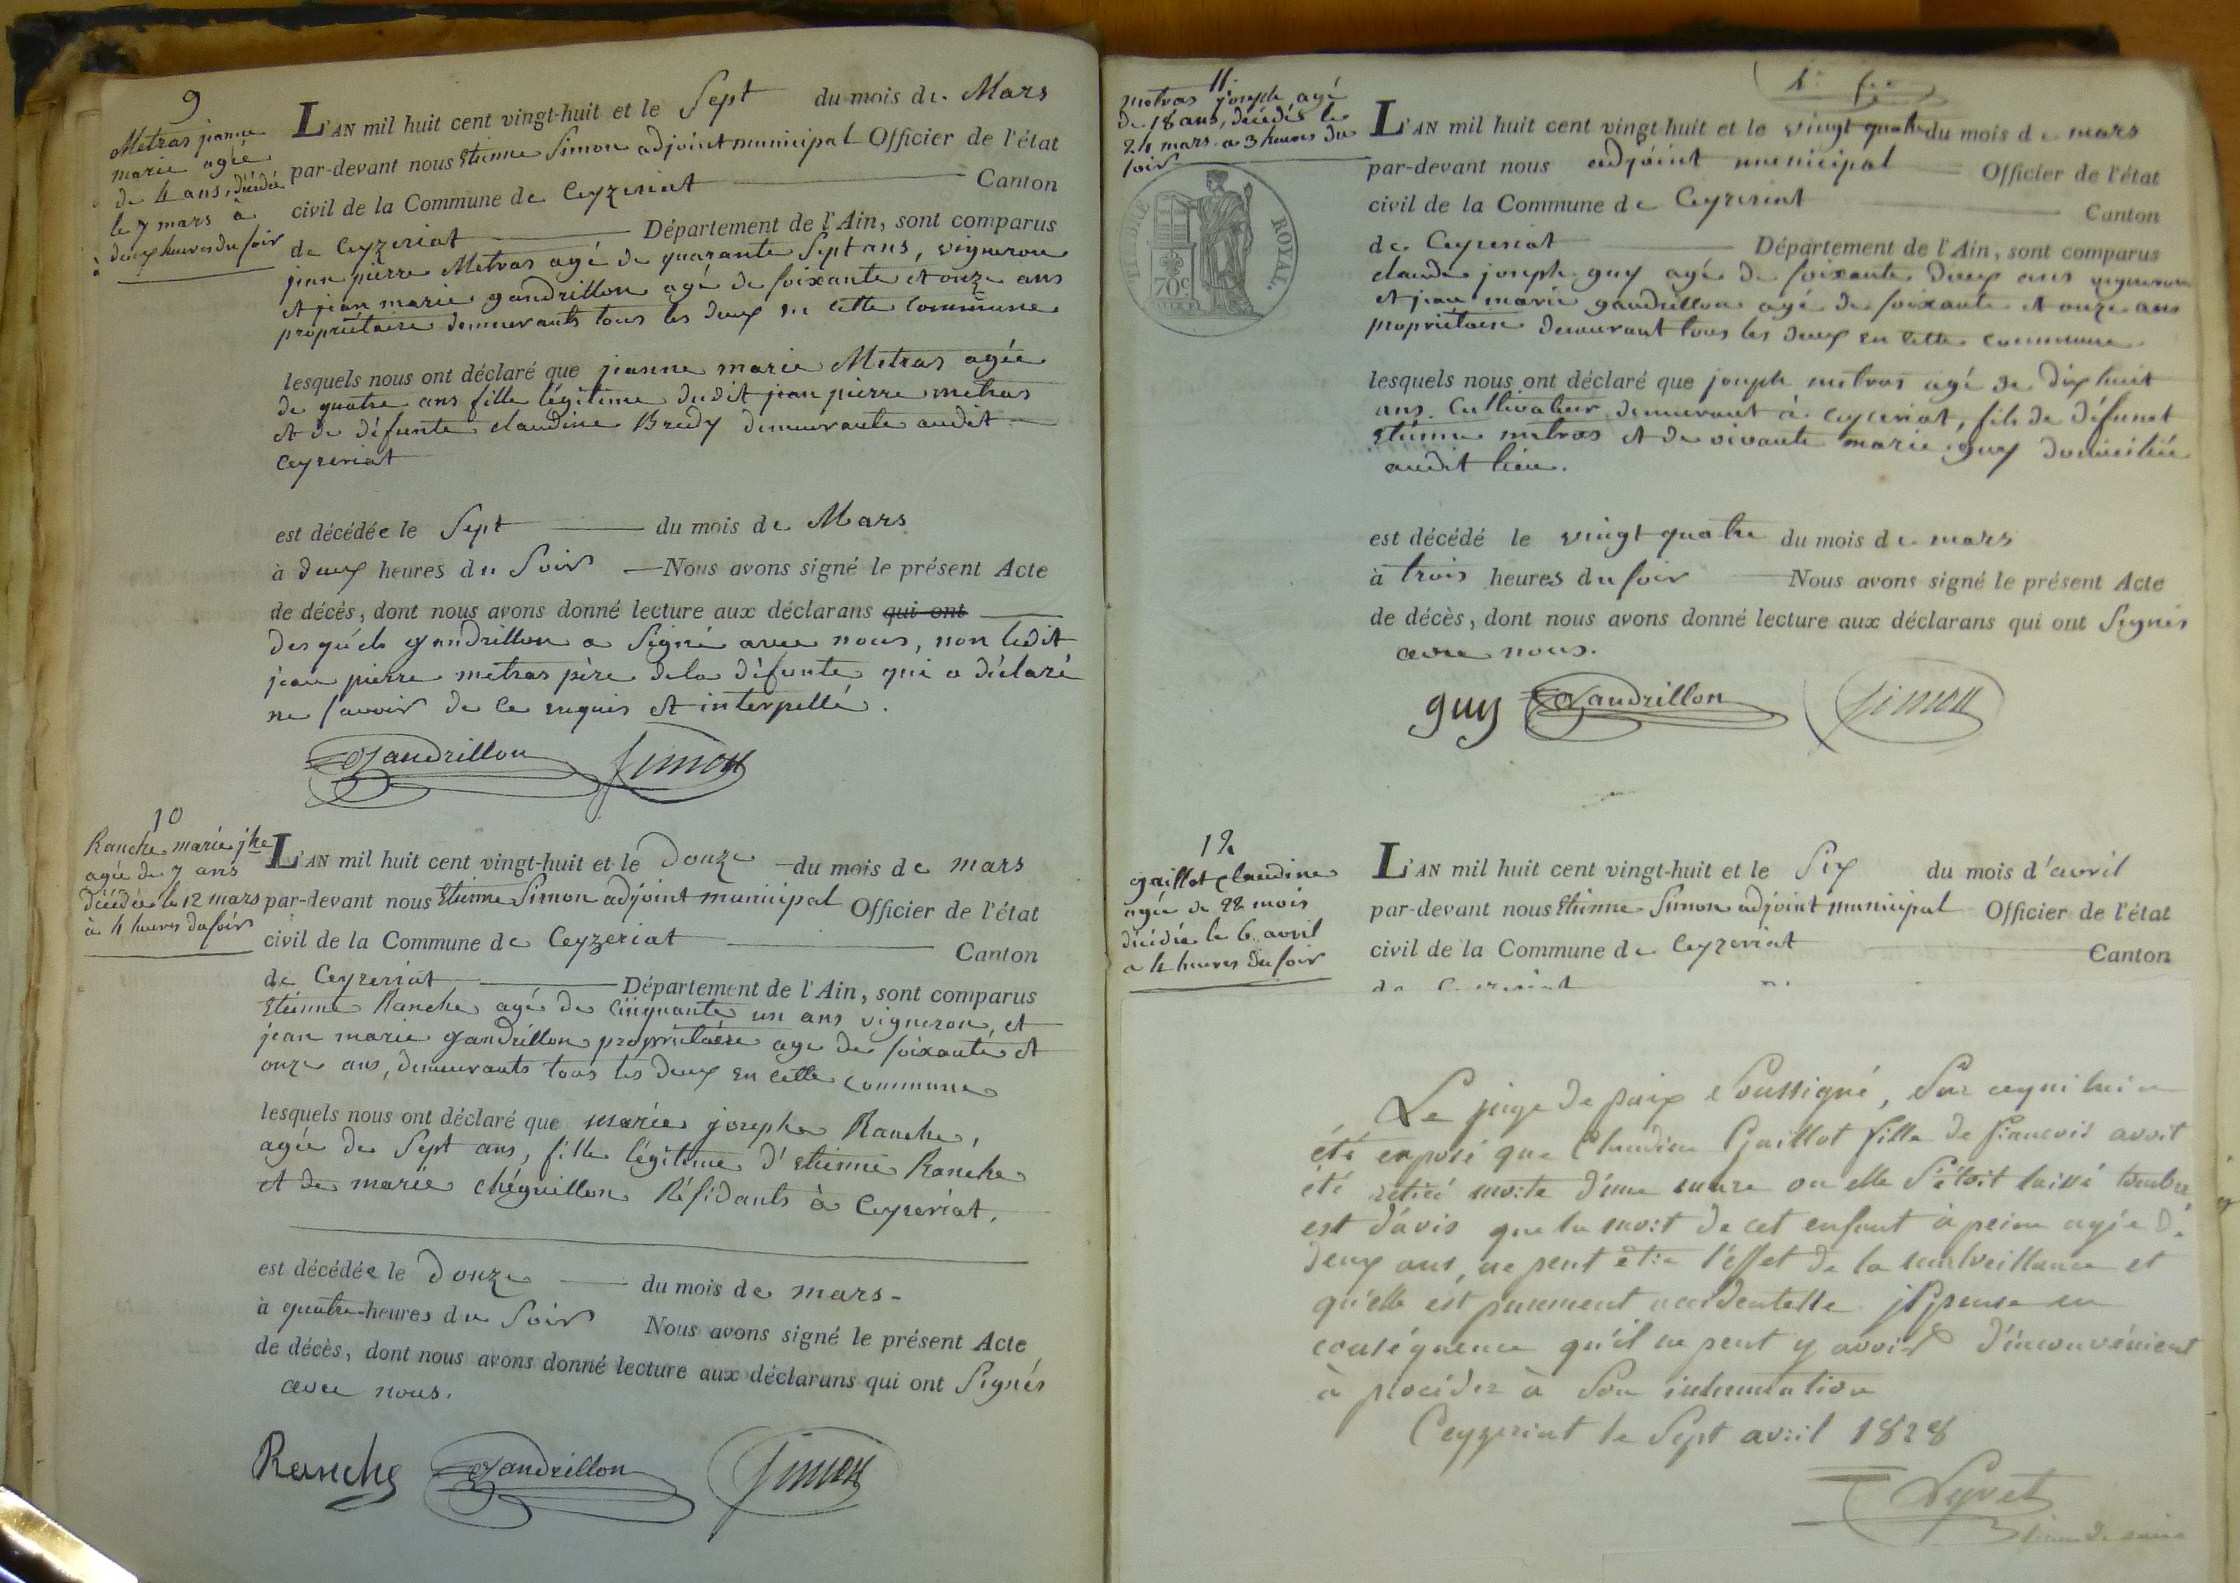 9
Metras jeanne
marie agée
de 4 ans, décédée
le 7 mars à
deux heures du soir
L'AN mil huit cent vingt-huit et le Sept du mois de Mars
par-devant nous Etienne Simon adjoint municipal Officier de l'état
civil de la Commune de Ceyzeriat Canton
de Ceyzeriat Département de l'Ain, sont comparus
jean pierre Metras agé de quarante Sept ans, vigneron
et jean marie gandrillon agé de soixante et onze ans
propriétaire demeurants tous les deux en cette commune
lesquels nous ont déclaré que jeanne marie Metras agée
de quatre ans fille légitime dudit jean pierre metras
et de défunte claudine Brudy demeurante audit
Ceyzeriat
est décédée le Sept du mois de Mars
à deux heures du Soir Nous avons signé le présent Acte
de décès, dont nous avons donné lecture aux déclarans qui ont
desquels gandrillon a Signé avec nous, non ledit
jean pierre metras père de la défunte qui a déclaré
ne savoir de ce enquis et interpellé.
Gandrillon Simon
10
Ranche marie jhe
agée de 7 ans
décédée le 12 mars
à 4 heures du soir
L'AN mil huit cent vingt-huit et le Douze du mois de mars
par-devant nous Etienne Simon adjoint municipal Officier de l'état
civil de la Commune de Ceyzeriat Canton
de Ceyzeriat Département de l'Ain, sont comparus
Etienne Ranche agé de Cinquante un ans vigneron, et
jean marie gandrillon propriétaire age de soixante et
onze ans, demeurants tous les deux en cette commune
lesquels nous ont déclaré que marie josephe Ranche,
agée de Sept ans, fille légitime d'Etienne Ranche
et de marie chéguillon Résidants à Ceyzeriat.
est décédée le Douze du mois de mars
à quatre heures du Soir Nous avons signé le présent Acte
de décès, dont nous avons donné lecture aux déclarans qui ont Signés
avec nous.
Ranche Gandrillon Simon
11
metras joseph agé
de 18 ans, décédé le
24 mars a 3 heures du
soir
TIMBRE ROYAL.
70c
L'AN mil huit cent vingt-huit et le vingt quatre du mois de mars
par-devant nous adjoint municipal Officier de l'état
civil de la Commune de Ceyzeriat Canton
de Ceyzeriat Département de l'Ain, sont comparus
claude joseph guy agé de soixante deux ans vigneron
et jean marie gandrillon agé de soixante et onze ans
propriétaire demeurant tous les deux en cette commune
lesquels nous ont déclaré que joseph metras agé de dix huit
ans, Cultivateur demeurant à ceyzeriat, fils de défunt
Etienne metras et de vivante marie guy domiciliée
audit lieu.
est décédé le vingt quatre du mois de mars
à trois heures du soir Nous avons signé le présent Acte
de décès, dont nous avons donné lecture aux déclarans qui ont Signés
avec nous.
guy Gandrillon Simon
12
gaillot claudine
agée de 22 mois
décédée le 6 avril
a 4 heures du soir
L'AN mil huit cent vingt-huit et le Six du mois d'avril
par-devant nous Etienne Simon adjoint municipal Officier de l'état
civil de la Commune de Ceyzeriat Canton
Le juge de paix Soussigné, Sur ce qui lui a
été exposé que Claudine Gaillot fille de francois avoit
été retiré morte d'une mare ou elle S'étoit laissé tomber
est d'avis que la mort de cet enfant à peine agée de
deux ans, ne peut être l'effet de la malveillance et
qu'elle est purement accidentelle Il pense en
conséquence qu'il ne peut y avoir d'inconvénient
à procéder à Son inhumation
Ceyzeriat le Sept avril 1828